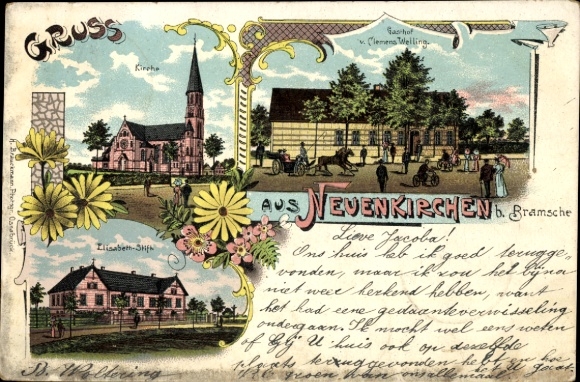 GRUSS
Kirche
Gasthof
v. Clemens Welling.
AUS NEUENKIRCHEN b. Bramsche
Elisabeth-Stift
Lieve Jacoba!
Ons huis heb ik goed terugge-
vonden, maar ik zou het bijna
niet weer herkend hebben, want
het had eene gedaanteverwisseling
ondergaan. Ik mocht wel eens weten
of Gij U huis ook op dezelfde
plaats teruggevonden hebt en hoe
van allemaal